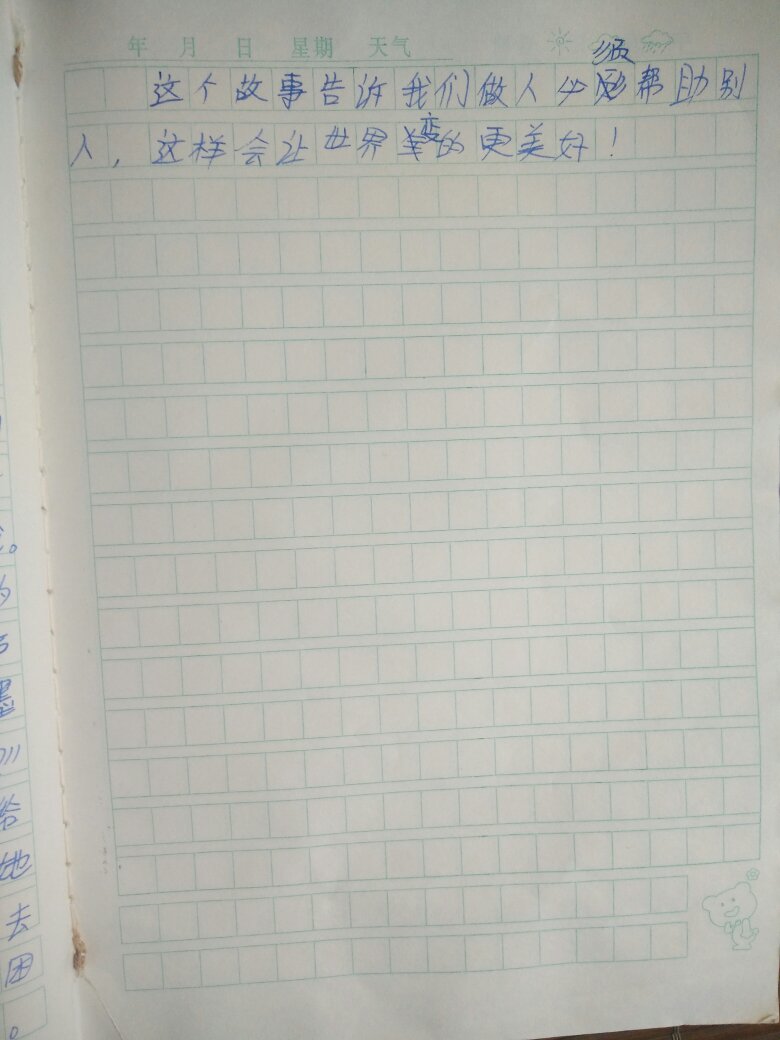 年 月 日 星期 天气
这个故事告诉我们做人必须帮助别
人，这样会让世界变的更美好！
。
为
墨
给
她
去
困
。